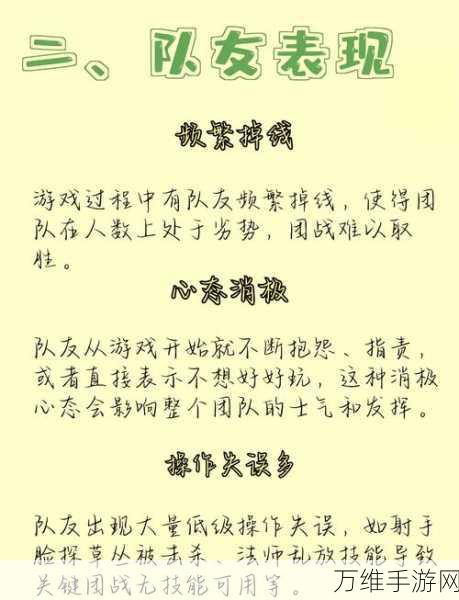 二、队友表现
频繁掉线
游戏过程中有队友频繁掉线，使得团
队在人数上处于劣势，团战难以取
胜。
心态消极
队友从游戏开始就不断抱怨、指责，
或者直接表示不想好好玩，这种消极
心态会影响整个团队的士气和发挥。
操作失误多
队友出现大量低级操作失误，如射手
脸探草丛被击杀、法师乱放技能导致
关键团战无技能可用等。
万维手游网